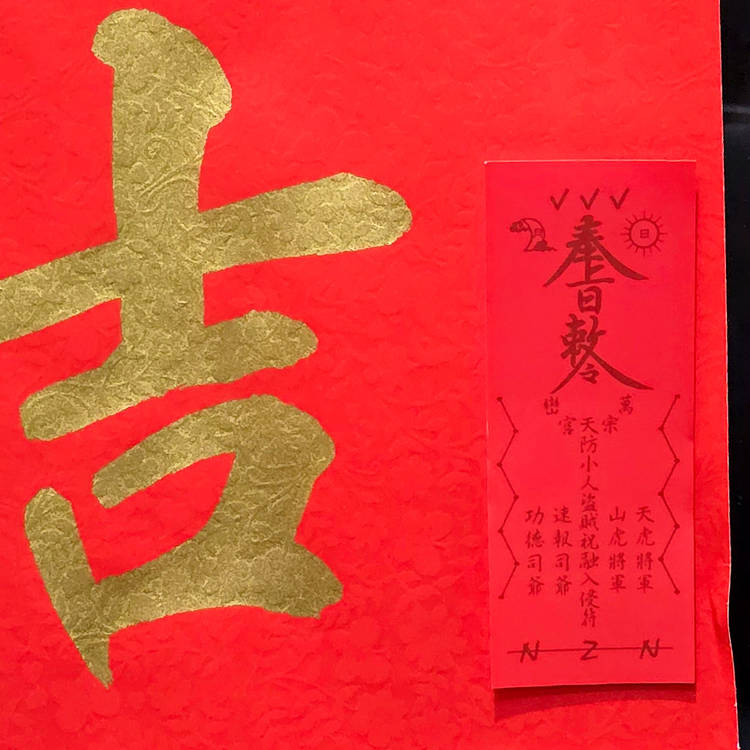 吉
月
日
奉
旨
敕令
萬 巒
宗 宮
天防小人盜賊祝融入侵符
天虎將軍
山虎將軍
速報司爺
功德司爺
N Z N